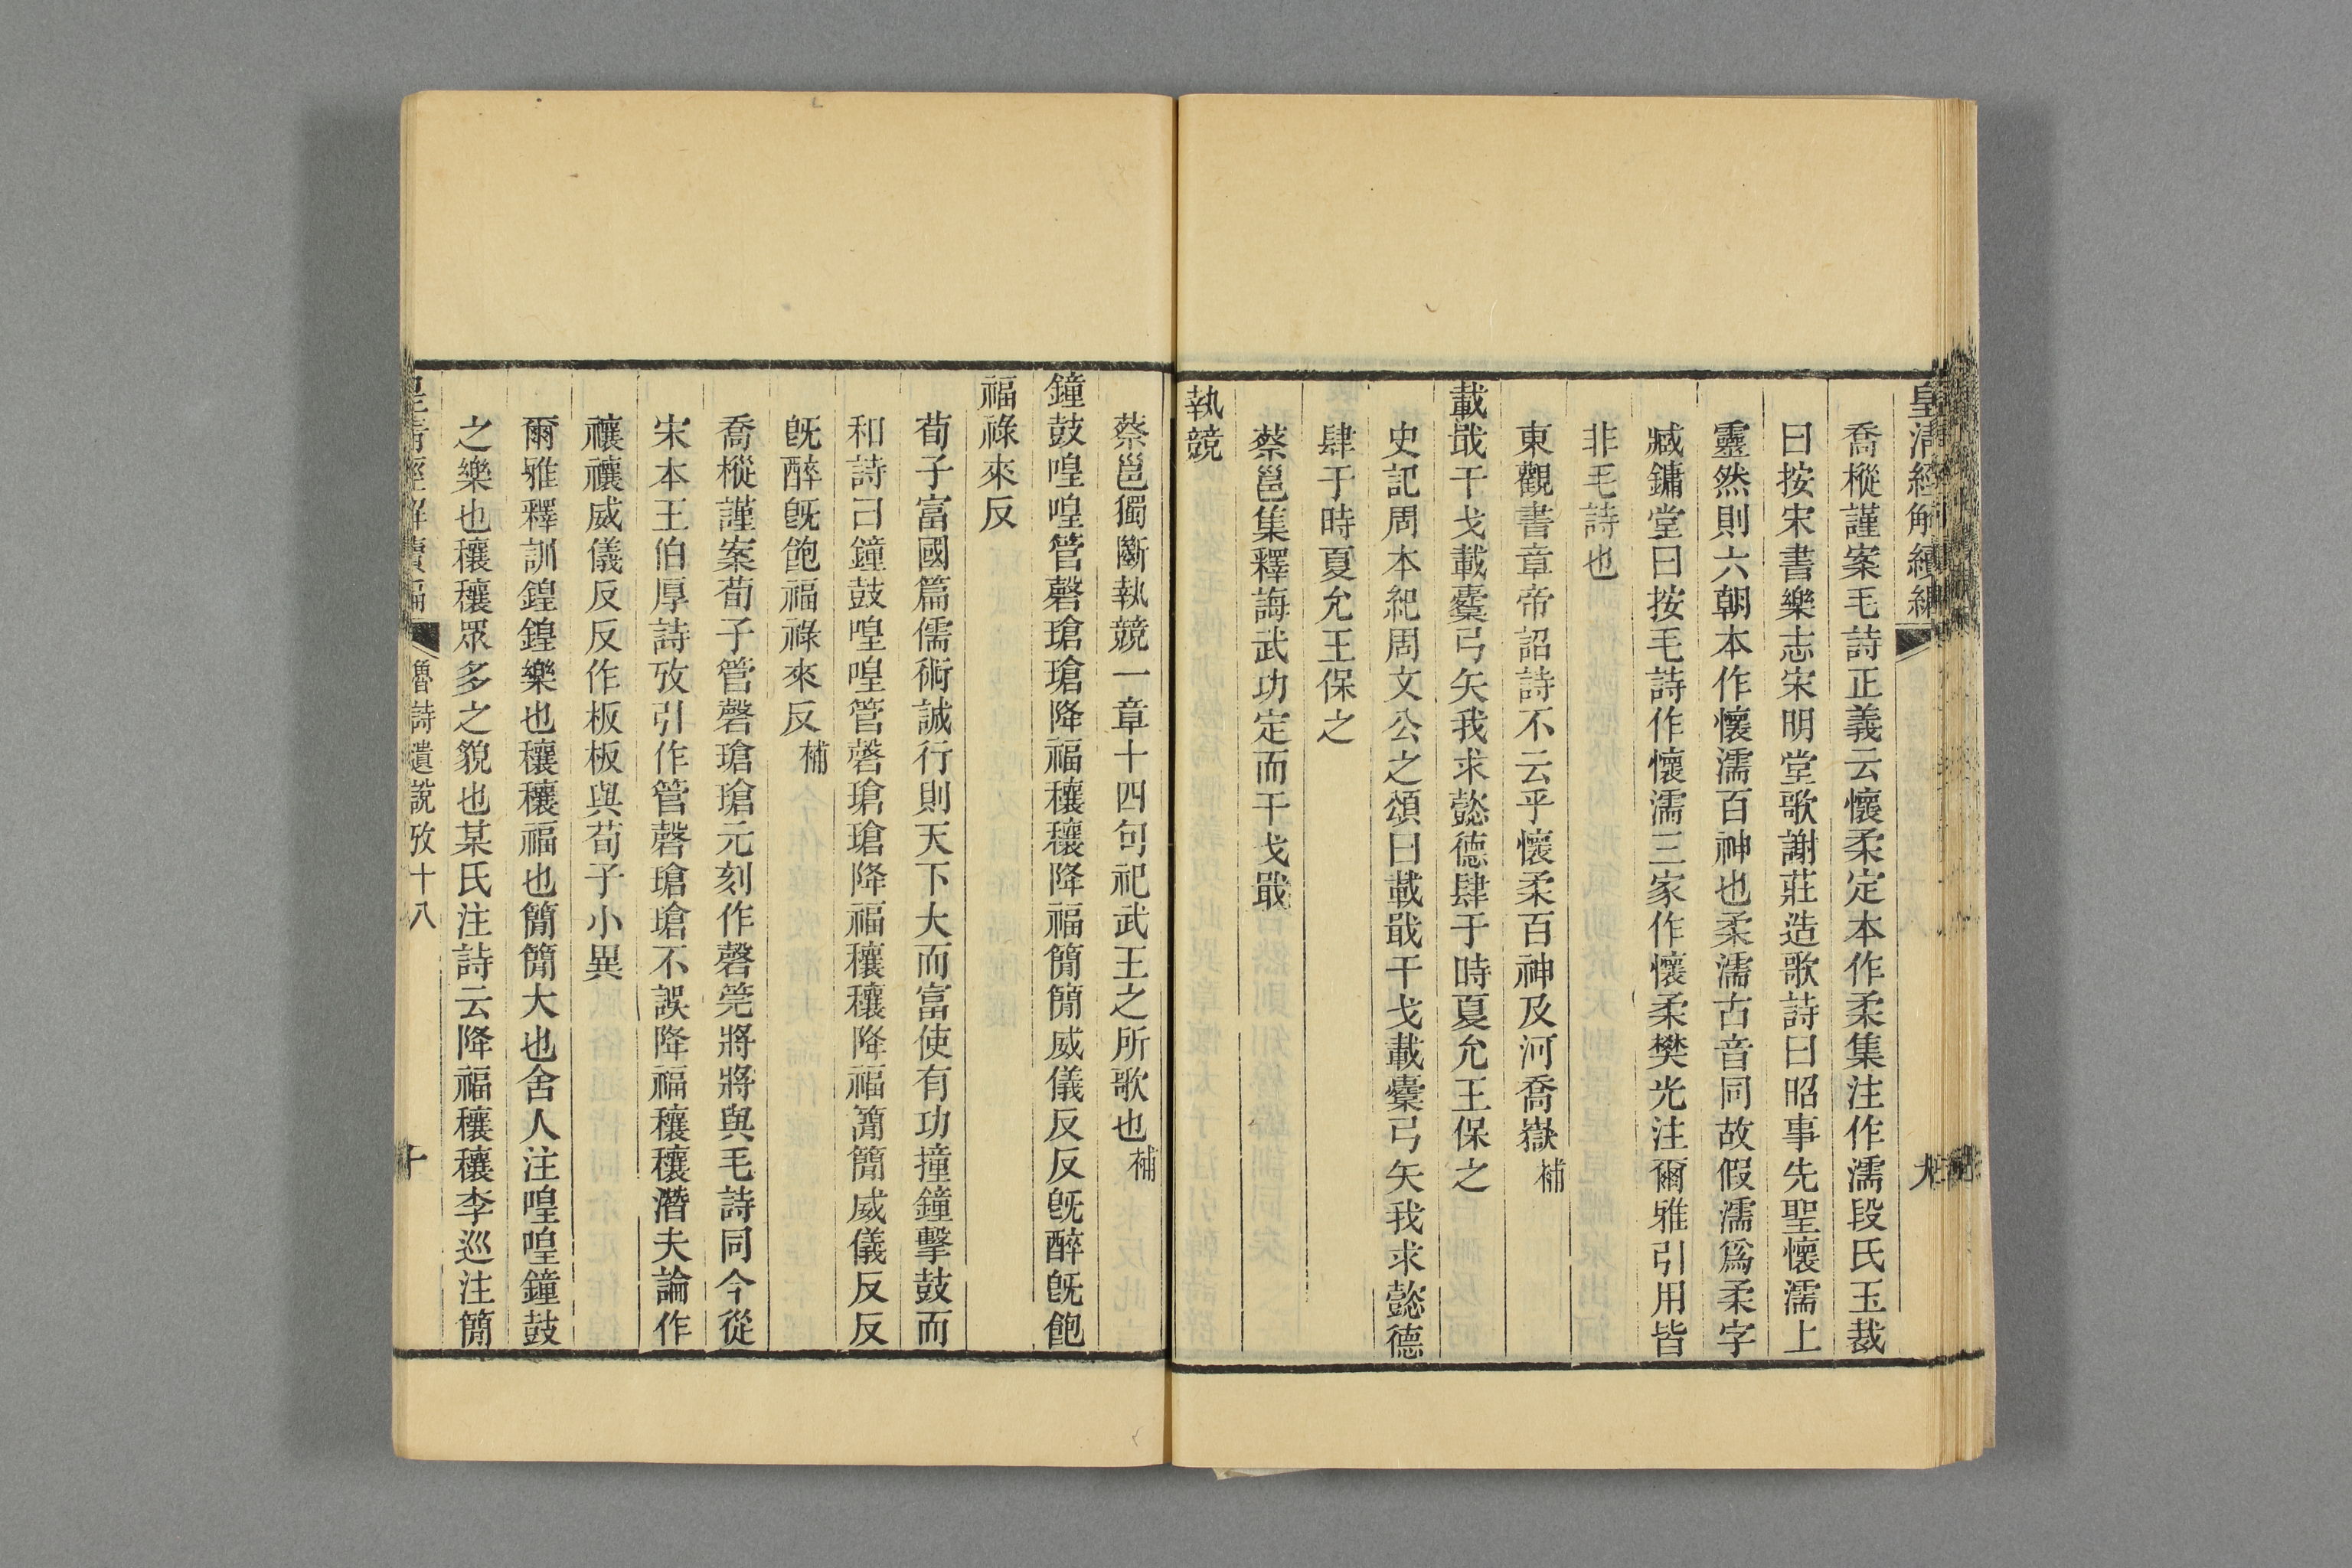 皇清經解續編
九
喬樅謹案毛詩正義云懷柔定本作柔集注作濡段氏玉裁
曰按宋書樂志宋明堂歌謝莊造歌詩曰昭事先聖懷濡上
靈然則六朝本作懷濡百神也柔濡古音同故假濡爲柔字
臧鏞堂曰按毛詩作懷濡三家作懷柔樊光注爾雅引用皆
非毛詩也
東觀書章帝詔詩不云乎懷柔百神及河喬嶽補
載戢干戈載櫜弓矢我求懿德肆于時夏允王保之
史記周本紀周文公之頌曰載戢干戈載櫜弓矢我求懿德
肆于時夏允王保之
蔡邕集釋誨武功定而干戈戢
執競
蔡邕獨斷執競一章十四句祀武王之所歌也補
鐘鼓喤喤管磬瑲瑲降福穰穰降福簡簡威儀反反旣醉旣飽
福祿來反
荀子富國篇儒術誠行則天下大而富使有功撞鐘擊鼓而
和詩曰鐘鼓喤喤管磬瑲瑲降福穰穰降福簡簡威儀反反
旣醉旣飽福祿來反補
喬樅謹案荀子管磬瑲瑲元刻作磬筦將將與毛詩同今從
宋本王伯厚詩攷引作管磬瑲瑲不誤降福穰穰潛夫論作
禳禳威儀反反作板板與荀子小異
爾雅釋訓鍠鍠樂也穰穰福也簡簡大也舍人注喤喤鐘鼓
之樂也穰穰眾多之貌也某氏注詩云降福穰穰李巡注簡
皇清經解續編
魯詩遺說攷十八
十